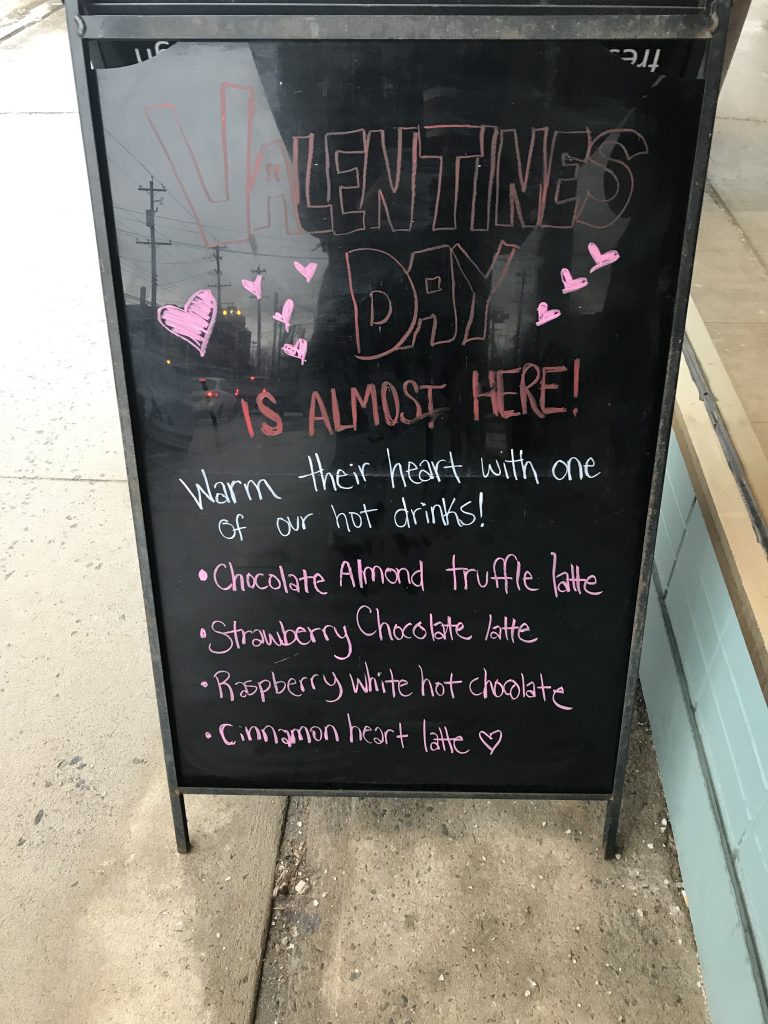 VALENTINES
DAY
IS ALMOST HERE!
Warm their heart with one
of our hot drinks!
• Chocolate Almond truffle latte
• Strawberry Chocolate latte
• Raspberry white hot chocolate
• Cinnamon heart latte ♡